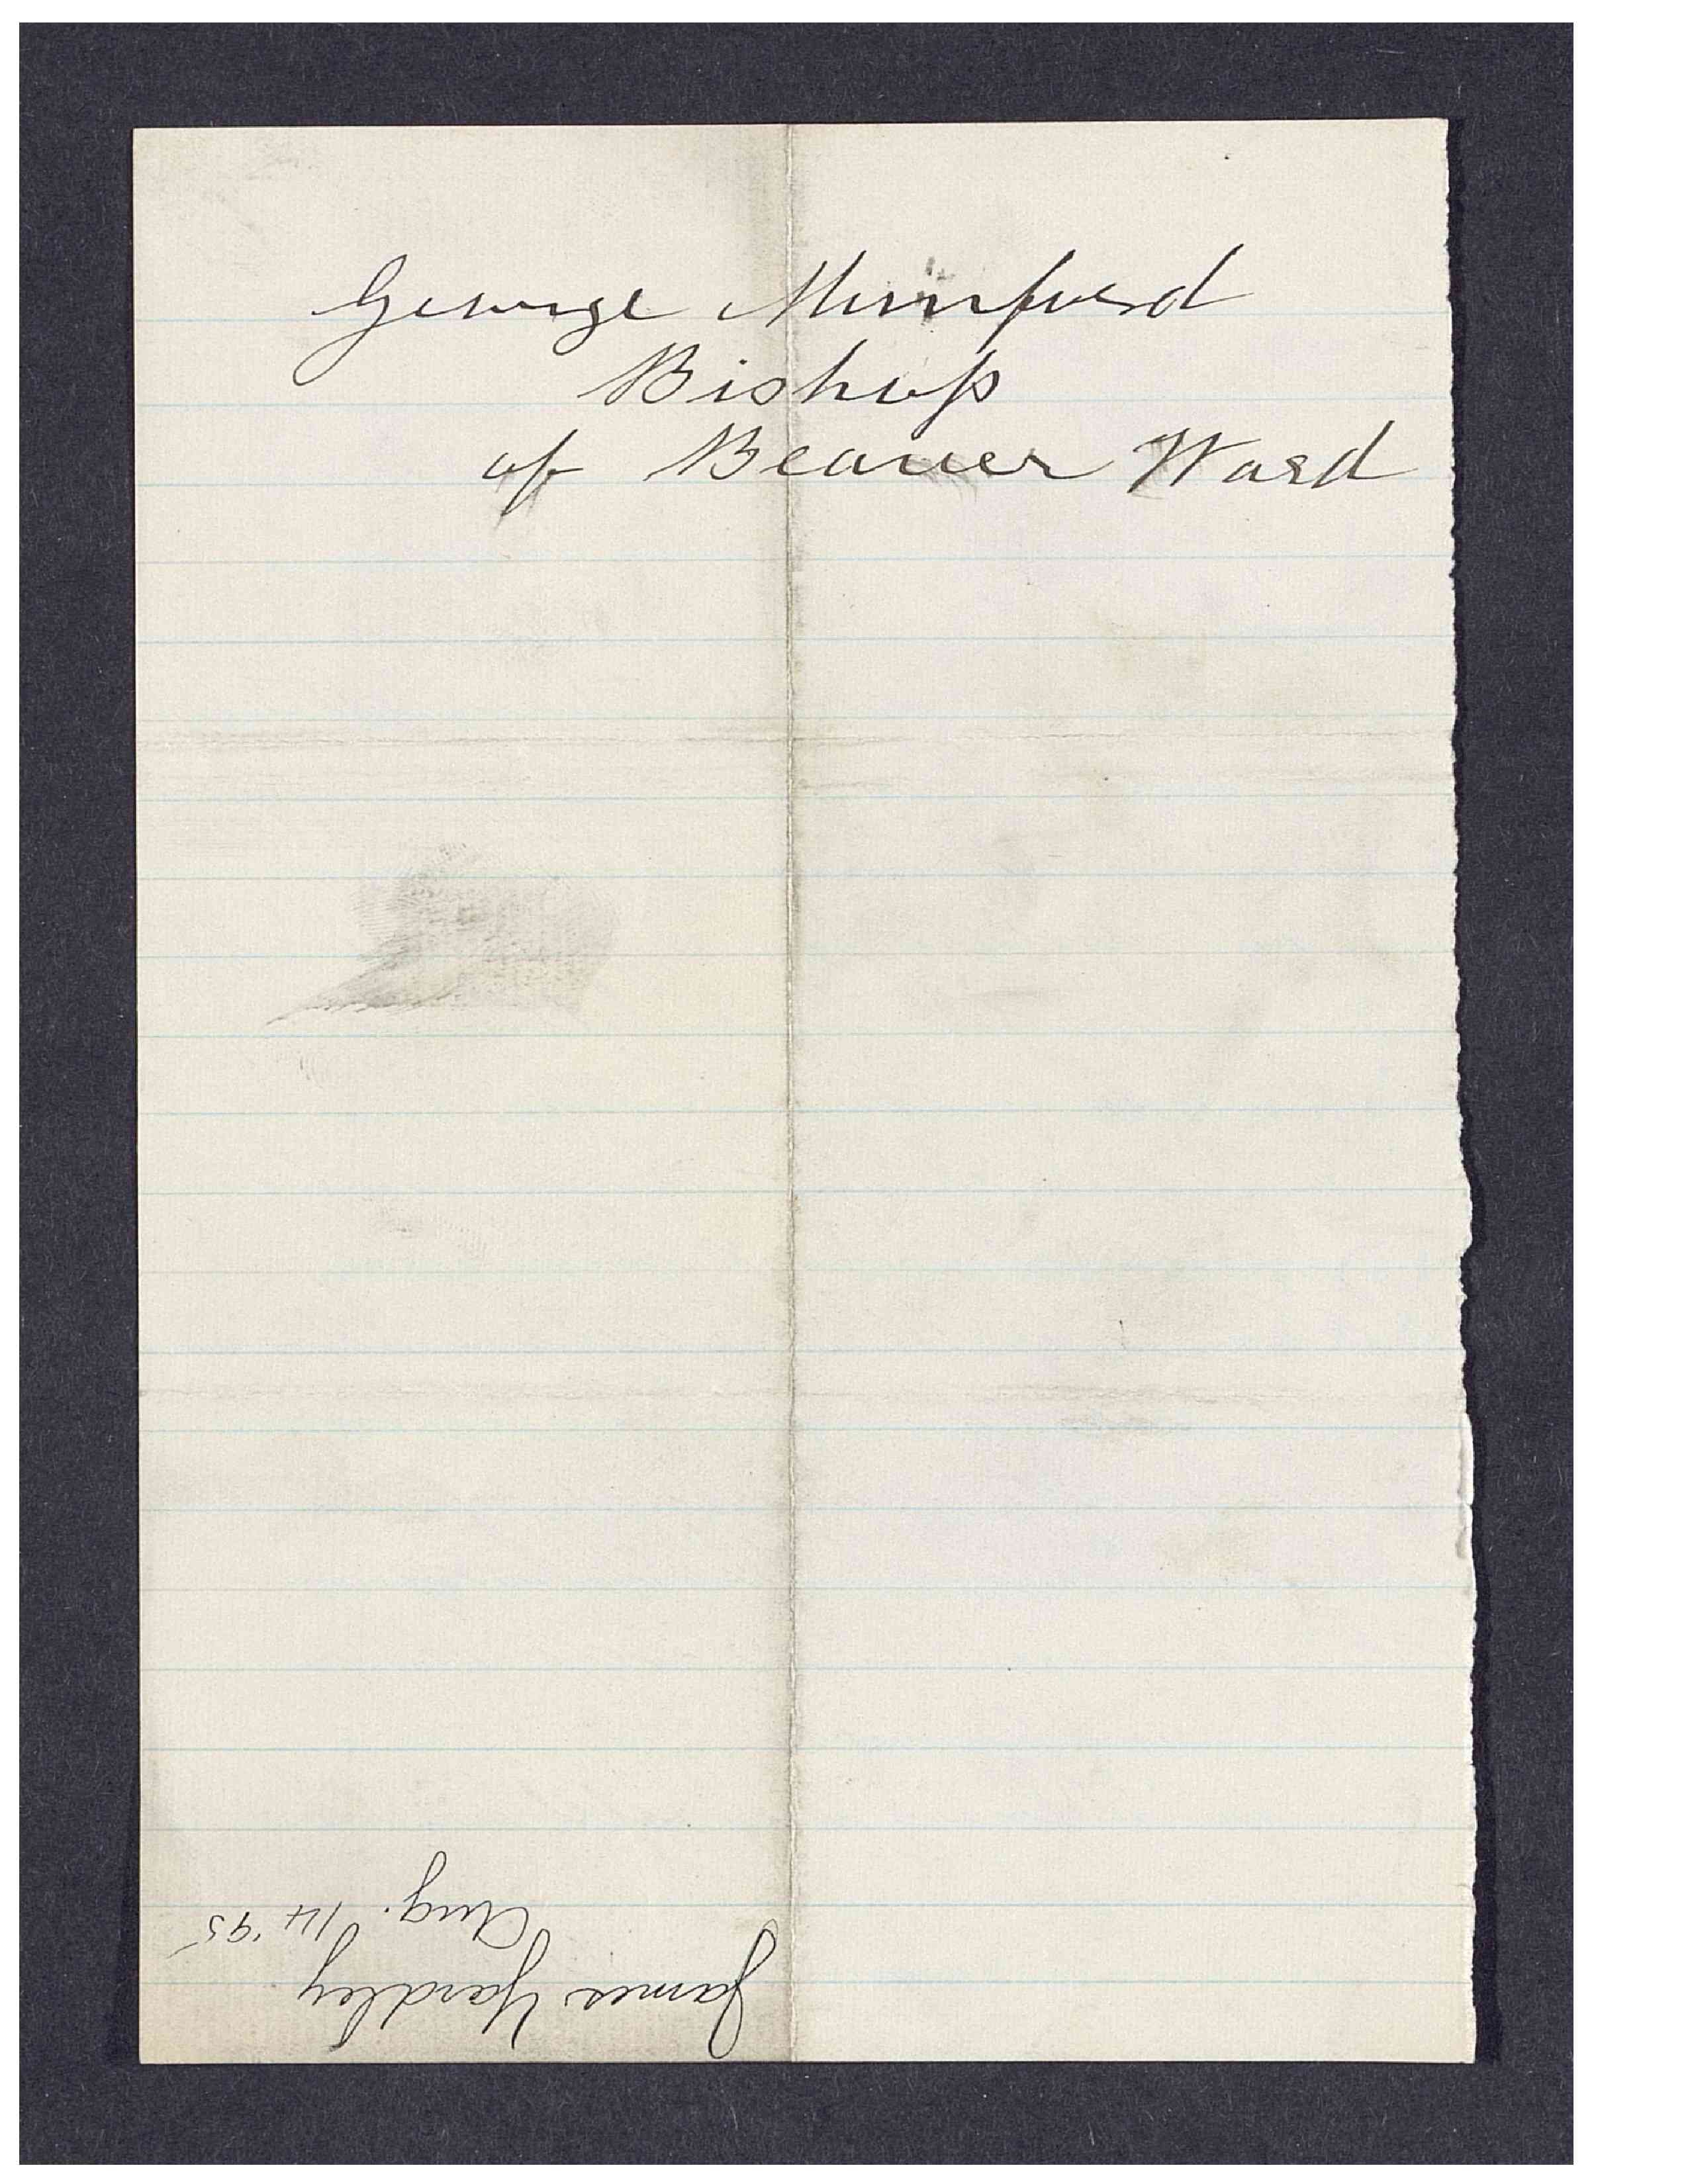 George Mumford
Bishop
of Beaver Ward
James Yardley
Aug. 14 '95